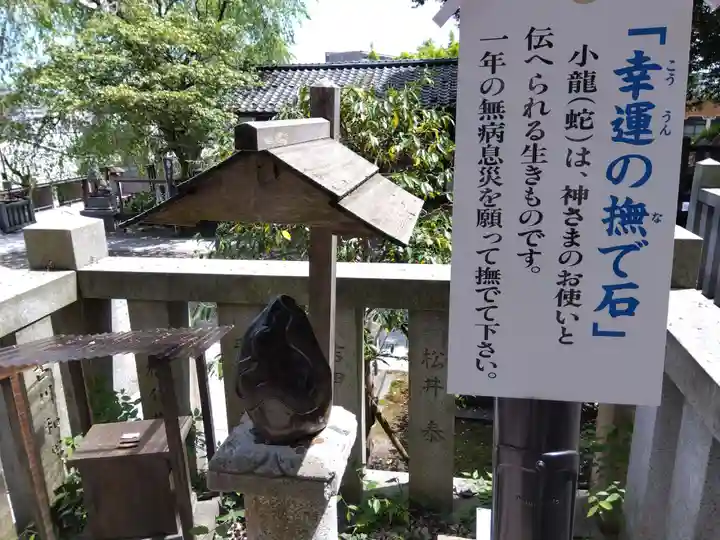 「幸運の撫で石」
こううん
な
小龍(蛇)は、神さまのお使いと
伝へられる生きものです。
一年の無病息災を願って撫でて下さい。
松井泰